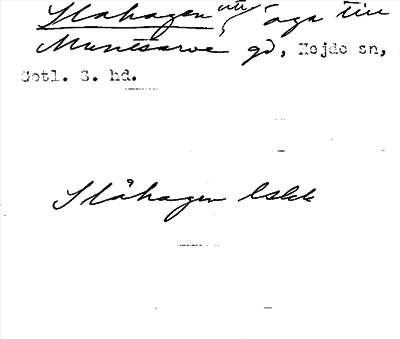 Slåhagen äga till
Muntsarve gd, Hejde sn,
Gotl. S. hd.
Slåhagen